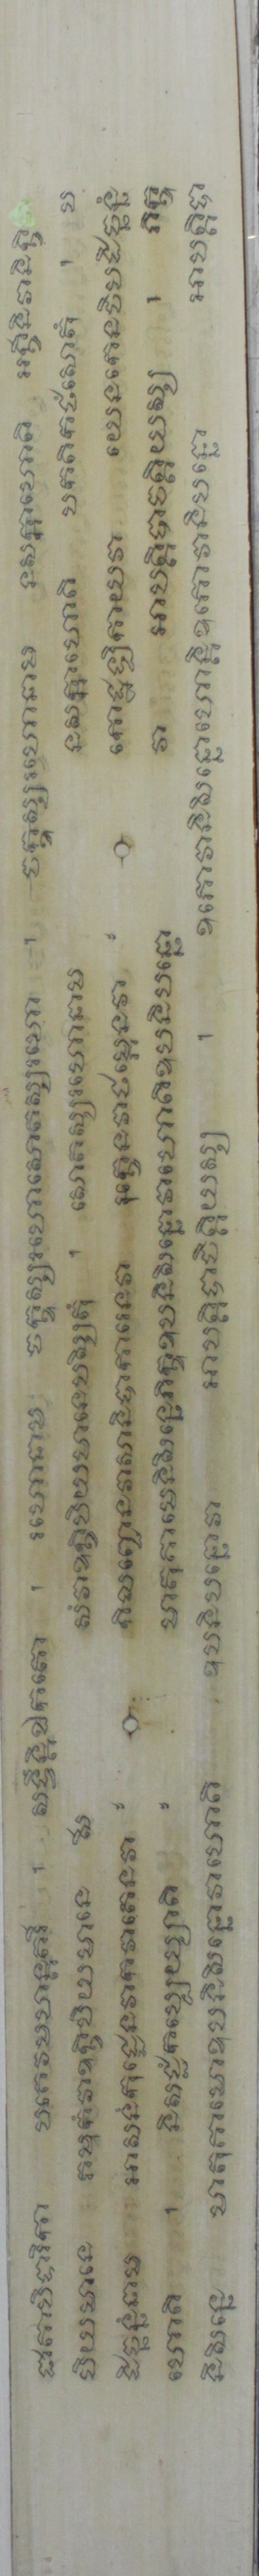 ជាតាបិទារិកា បគេវមហន្តតរី ។ សទ្ធឹន្តិឯកតោ ។ រហោនាម ចក្ខុស្សរហោសោតស្សរហោ ។ ចក្ខុស្សរហោនាម នសក្កាហោតិ អក្ខឹនិវានិក្ខិ
បិយមានេ ភមុកំវាឧក្ខិបិយមានេ សី សំវាឧក្ខិបិយមានេបស្សិតុំ ។ សោតស្សរហោនាម នសក្កាហោតិ បកតិកថំសោតុំ ។ ប
ដិច្ឆន្នំនាម អាសនំកុឌ្ឌេនវាកវាតេនវា កិលញ្ជេនវាសានិបាការេនវា រុក្ខេនវាថម្ភេនវា កោដ្ឋឡិកាយវា យេនកេនចិបដិច្ឆន្នំ
ហោតិ ។ និសជ្ជំកប្បេយ្យាតិ មាតុគាមេនិសិន្នេភិក្ខុឧបនិសិន្នោវាហោតិឧបនិបន្នោ វា អាបត្តិបាចិត្តិយស្ស ។ ភិក្ខុ
និសិន្នេ មាតុគាមោឧបនិសិន្នោវាហោតិ ឧបនិបន្នោវា អាបត្តិបាចិត្តិយស្ស ។ ឧភោវានិសិន្នាហោន្តិឧភោវានិបន្នា អាបត្តិបា